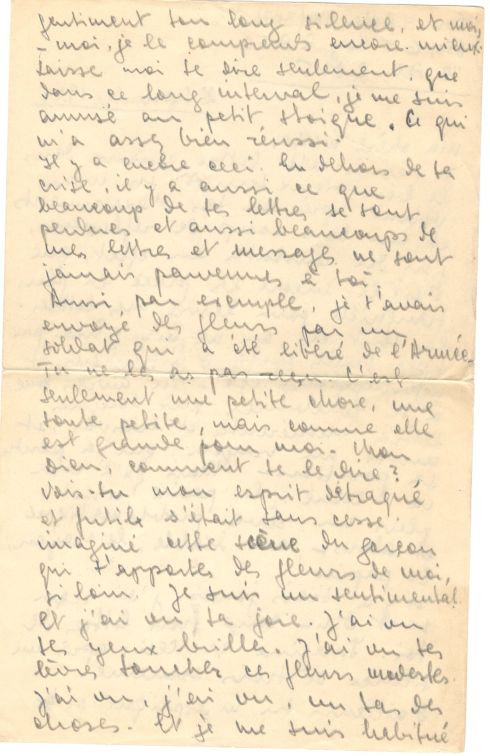 gentiment ton long silence, et moi,
- moi, je le comprends encore mieux.
Laisse moi te dire seulement, que
dans ce long interval, je me suis
amusé au petit stoïque. Ce qui
m'a assez bien réussi.
Il y a encore ceci. En dehors de ta
crise, il y a aussi ce que
beaucoup de tes lettres se sont
perdues et aussi beaucoups de
mes lettres et messages ne sont
jamais parvenues à toi.
Aussi, par exemple, je t'avais
envoyé des fleurs par un
soldat qui a été libéré de l'Armée.
Tu ne les as pas reçu. C'est
seulement une petite chose, une
toute petite, mais comme elle
est grande pour moi. Mon
Dieu, comment te le dire?
Vois-tu mon esprit détraqué
et futile s'était sans cesse
imaginé cette scène du garçon
qui t'apportes des fleurs de moi,
si loin. Je suis un sentimental.
Et j'ai vu ta joie. J'ai vu
tes yeux briller. J'ai vu tes
lèvres toucher ces fleurs modestes.
J'ai vu, j'ai vu, un tas des
choses. Et je me suis habitué